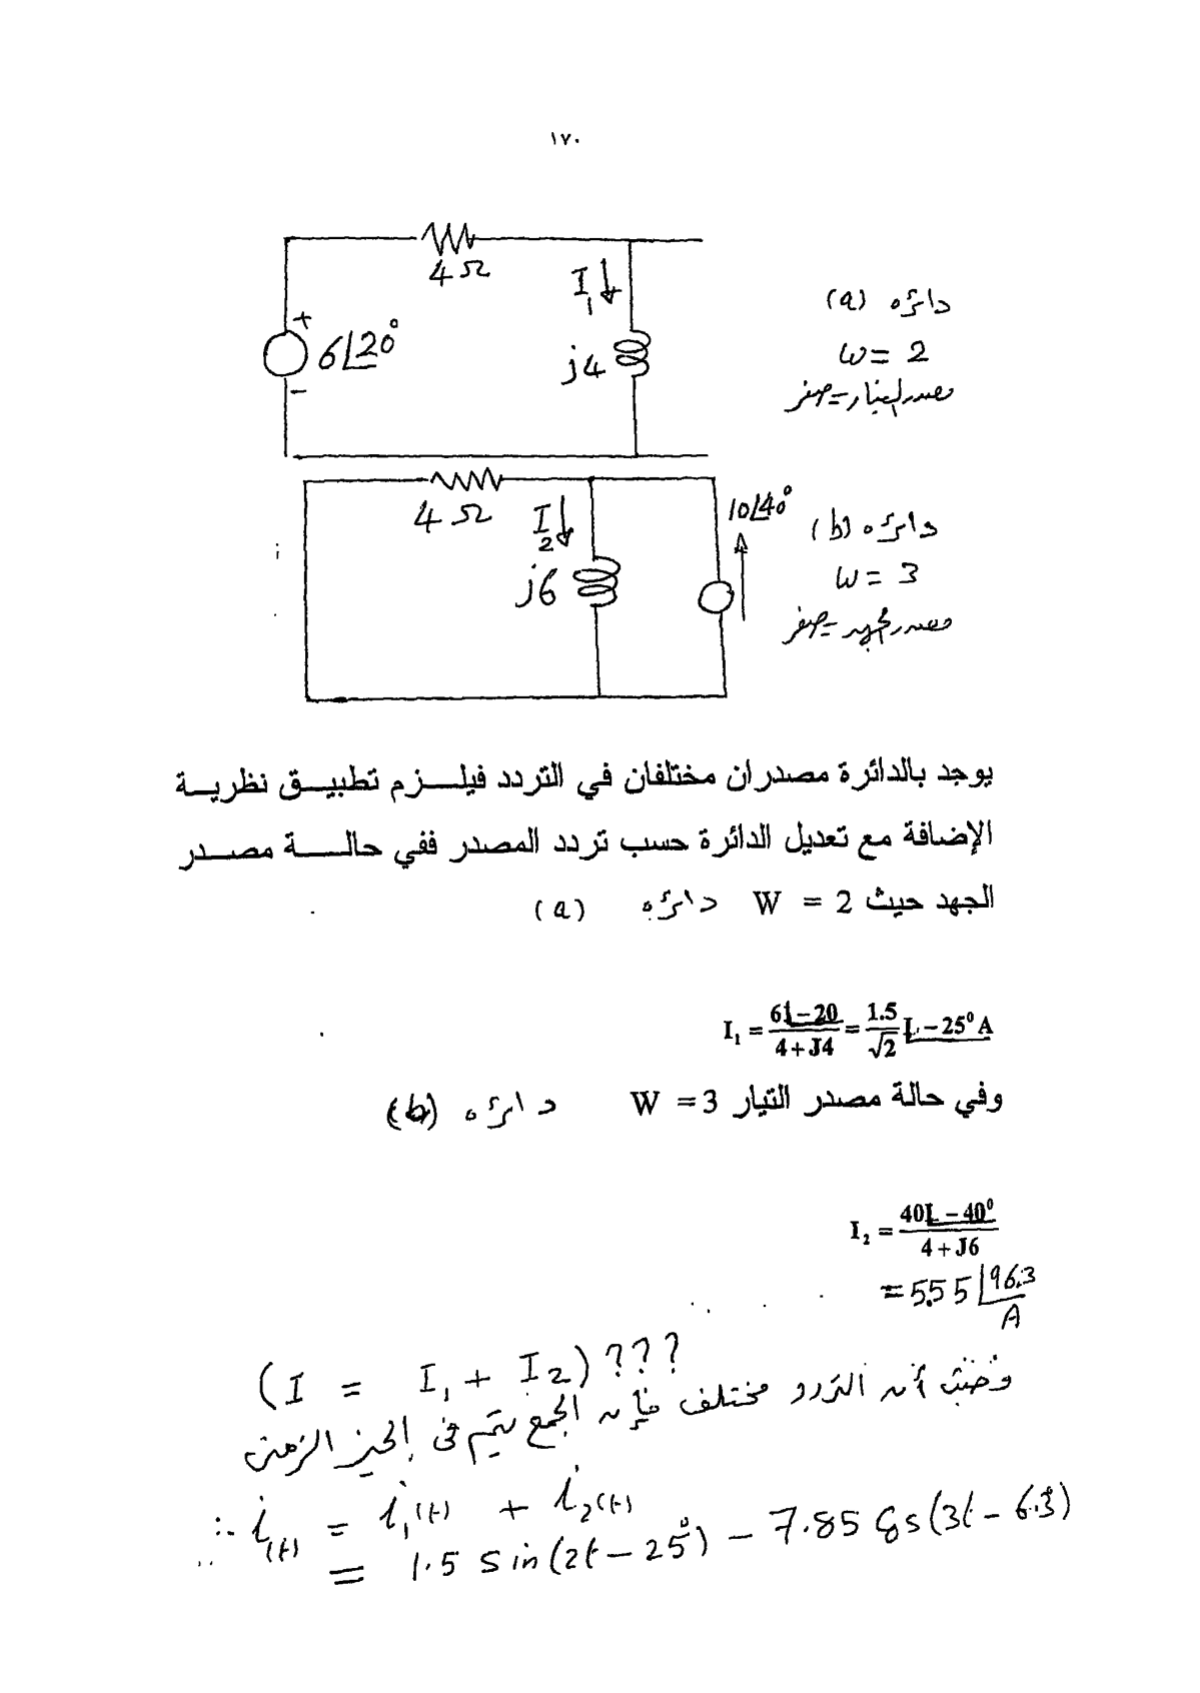 ١٧٠
4Ω
I₁
+
6∠20°
j4
-
دائره (a)
W= 2
مصدر التيار = صفر
4Ω
I₂
j6
10∠40°
دائره (b)
W= 3
مصدر الجهد = صفر
يوجد بالدائرة مصدران مختلفان في التردد فيلـــزم تطبيــق نظريــة
الإضافة مع تعديل الدائرة حسب تردد المصدر ففي حالــــة مصــدر
الجهد حيث W = 2 دائره (a)
I₁ = 6∠-20 / 4+J4 = 1.5/√2 ∠-25⁰ A
وفي حالة مصدر التيار W =3 دائره (b)
I₂ = 40∠-40⁰ / 4+J6
= 5.55∠96.3 A
(I = I₁ + I₂) ???
وحيث أن التردد مختلف فإن الجمع يتم في الحيز الزمني
∴ i(t) = i₁(t) + i₂(t)
= 1.5 sin(2t-25°) - 7.85 cos(3t-6.3°)